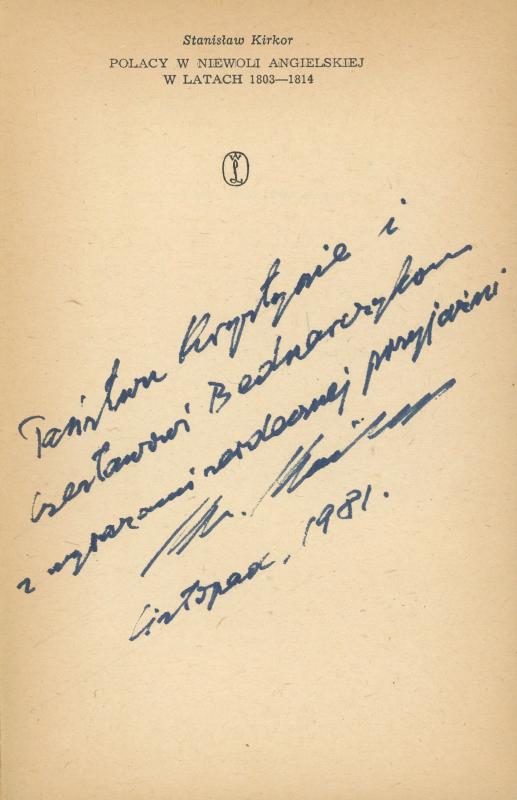 Stanisław Kirkor
POLACY W NIEWOLI ANGIELSKIEJ
W LATACH 1803—1814
WL
Państwu Krystynie i
Czesławowi Bednarczykom
z wyrazami serdecznej przyjaźni
St. Kirkor
Listopad, 1981.